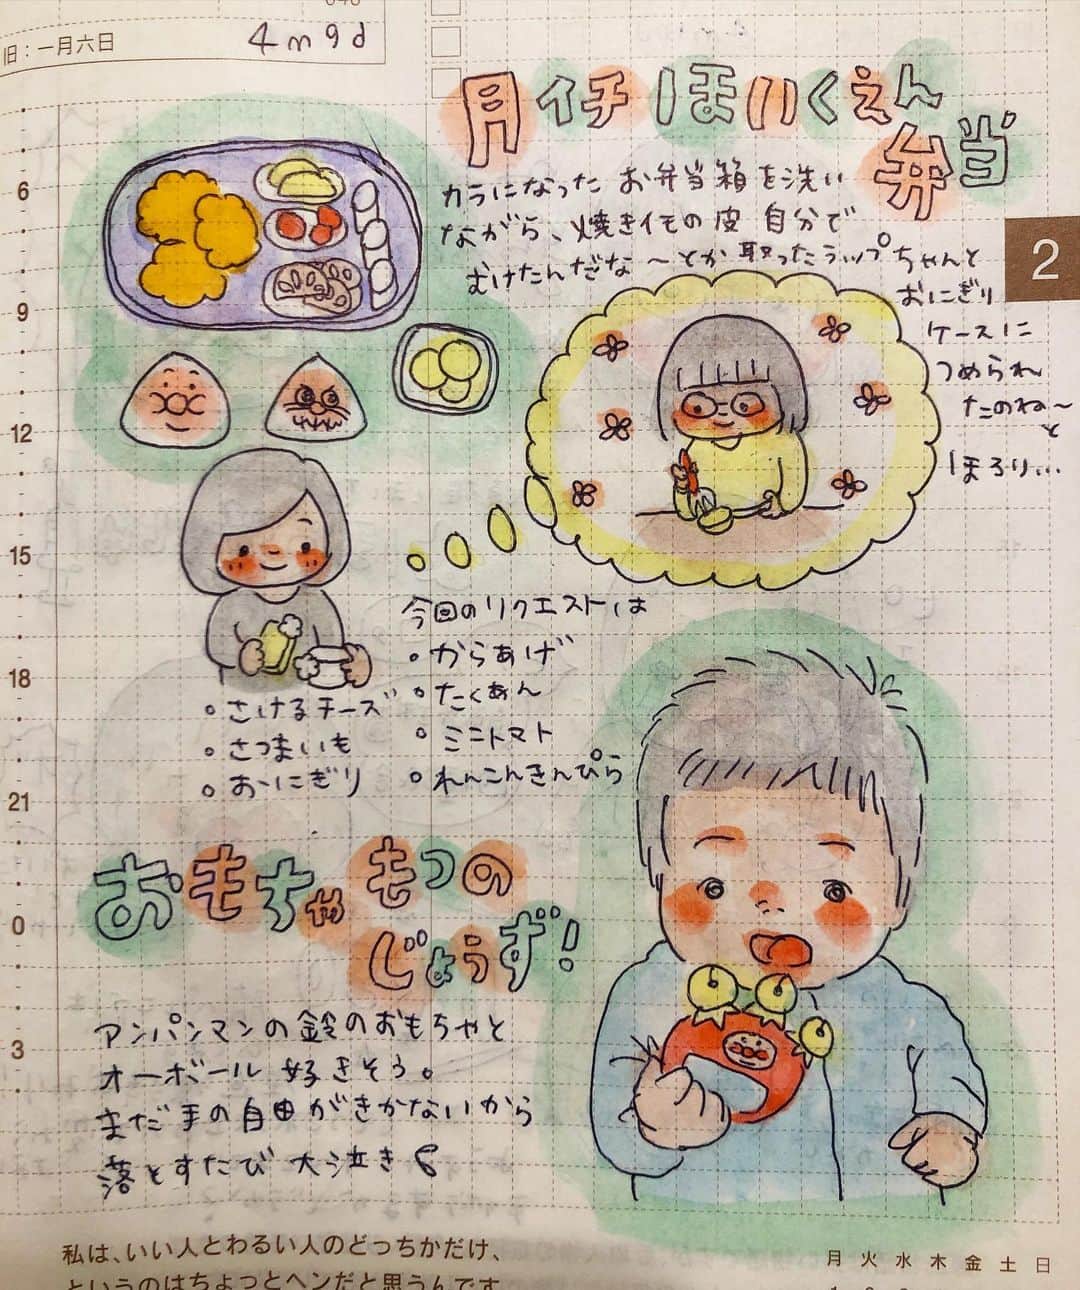 旧：一月六日
4m9d
月イチほいくえん
弁当
カラになった お弁当箱を洗い
ながら、焼きイモの皮 自分で
むけたんだな～とか取ったラップちゃんと
おにぎり
ケースに
つめられ
たのね～
と
ほろり…
2
6
9
12
15
18
21
0
3
今回のリクエストは
・からあげ
・たくあん
・ミニトマト
・れんこんきんぴら
・さけるチーズ
・さつまいも
・おにぎり
おもちゃ もつの
じょうず!
アンパンマンの鈴のおもちゃと
オーボール 好きそう。
まだ手の自由がきかないから
落とすたび 大泣き
私は、いい人とわるい人のどっちかだけ、
というのはちょっとヘンだと思うんです
月 火 水 木 金 土 日